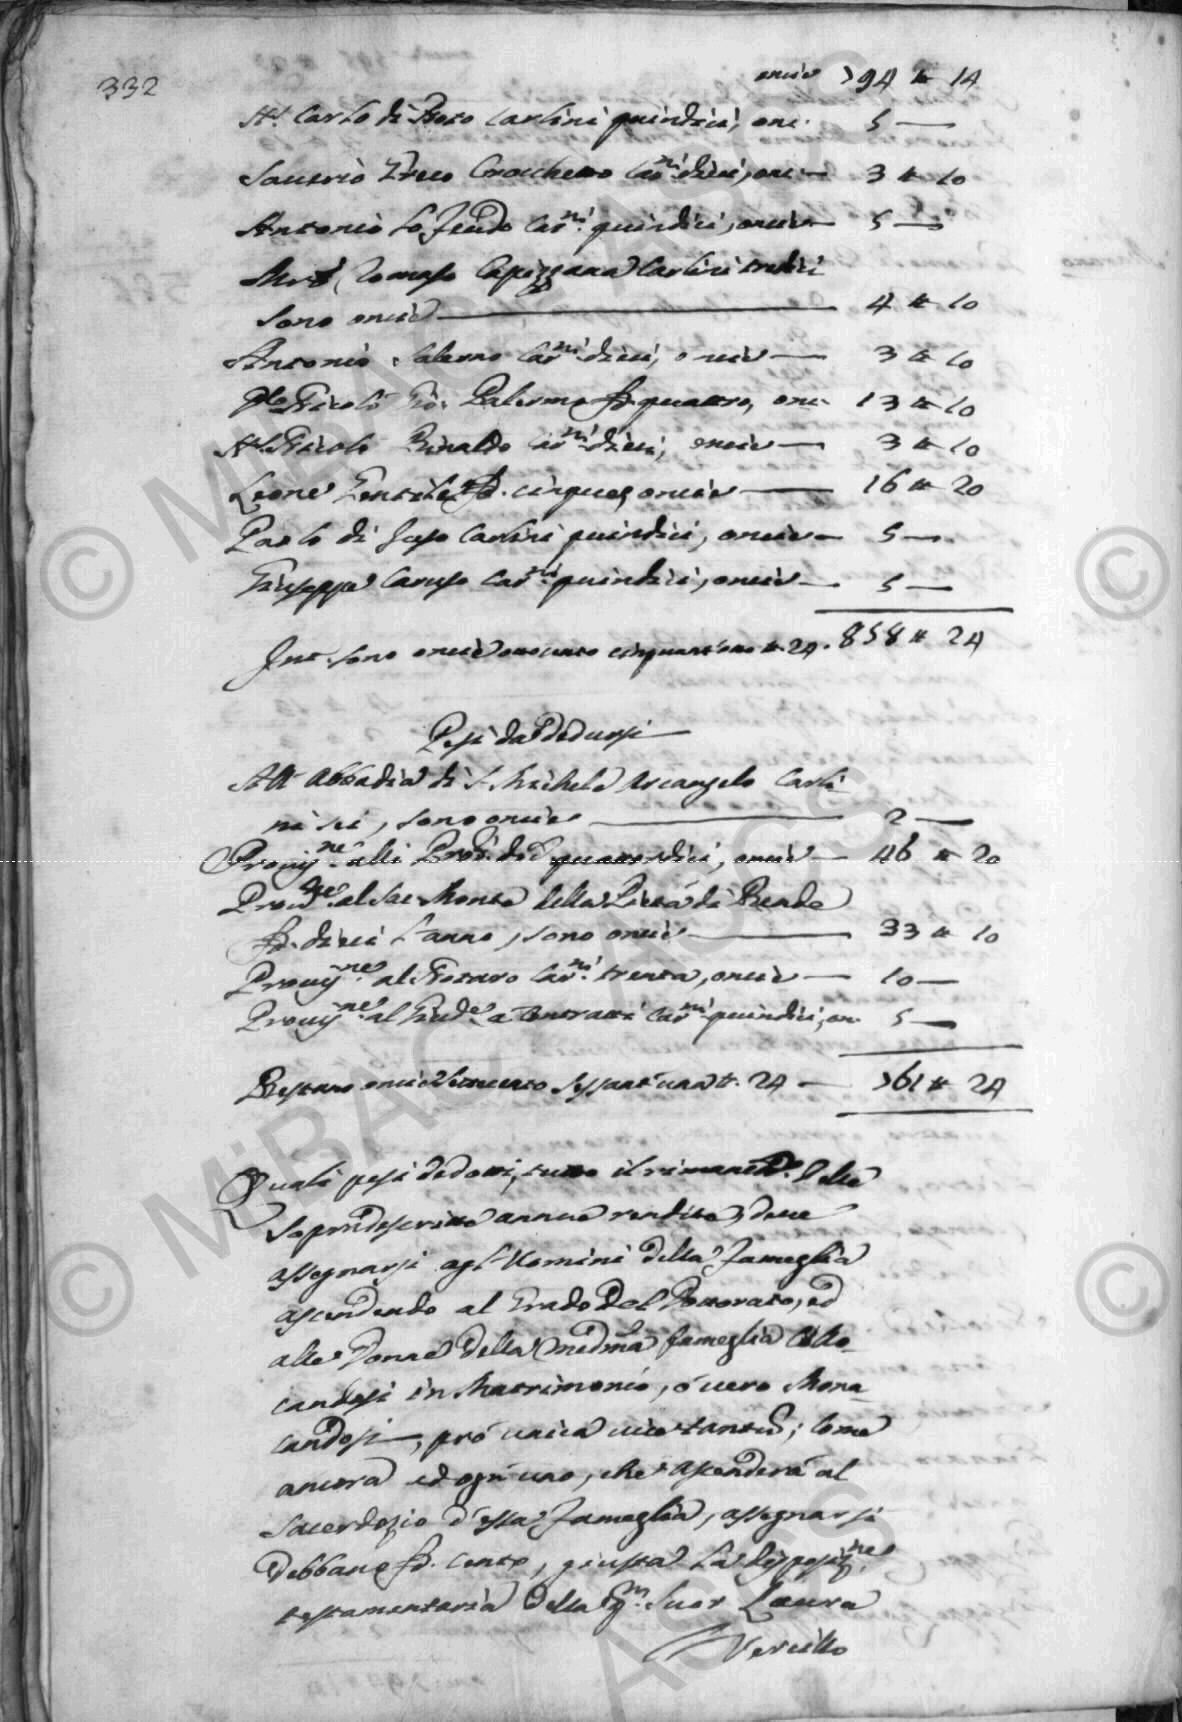 332
oncie 794 tt 14
Carlo di Carlini quindici, onc. 5 —
Saverio Greco Crocchetto Car.ni dieci, onc. — 3 tt 10
Antonio Lo Feudo Car.ni quindici, oncie — 5 —
Tomaso Capizzana Carlini tredici
sono oncie — 4 tt 10
Antonio Salerno Car.ni dieci, oncie — 3 tt 10
Nicolò Gio. Palermo quattro, onc. 13 tt 10
Nicolò Rinaldo Car.ni dieci, oncie — 3 tt 10
Leone Gentile cinque, oncie — 16 tt 20
Paolo di Carlini quindici, oncie — 5 —
Giuseppe Caruso Car.ni quindici, oncie — 5 —
sono oncie ottocento cinquant'otto tt. 24. 858 tt 24
Pesi da Dedursi
All' Abbadia di S. Michele Arcangelo Carli-
ni sei, sono oncie — 2 —
Provis.ne alli quattordici, oncie — 46 tt 20
al Sac. Monte della Pietà di Rende
dieci l'anno, sono oncie — 33 tt 10
Provis.ne al Notaro Car.ni trenta, oncie — 10 —
Provis.ne al Giud.e a Contratti Car.ni quindici, on. 5 —
Restano oncie settecento sessant'una tt. 24 — 761 tt 24
Quali pesi dedotti, tutto il rimanen.e delle
sopradescritte annue rendite, deve
assegnarsi agl'Uomini della fameglia
ascendendo al Grado del Dottorato, ed
alle Donne della med.ma fameglia collo-
candosi in Matrimonio, ò vero Mona-
candosi, prò unica vice tantum; come
ancora ed ogn'uno, che ascenderà al
Sacerdozio d'essa fameglia, assegnarsi
debbano cento, giusta la disposiz.ne
testamentaria della q.m Suor Laura
Vercillo
© MiBAC - ASCS
© MiBAC - ASCS
© ASCS
©